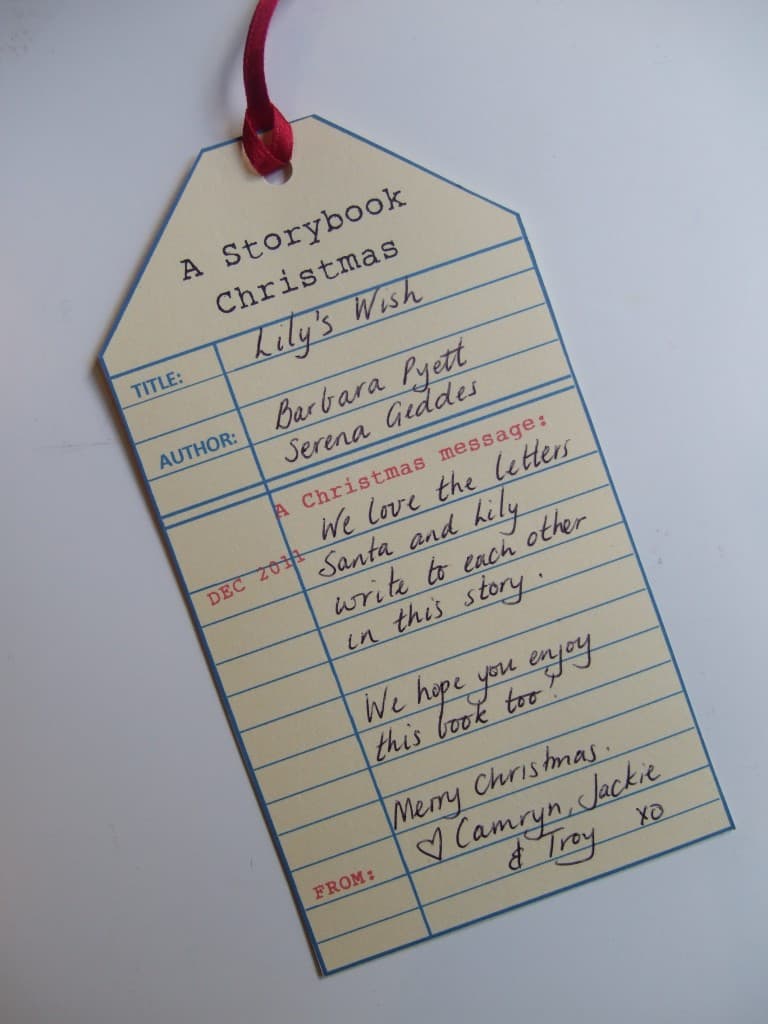 A Storybook
Christmas
TITLE: Lily's Wish
AUTHOR: Barbara Pyett
Serena Geddes
A Christmas message:
We love the letters
DEC 2011 Santa and Lily
write to each other
in this story.
We hope you enjoy
this book too!
Merry Christmas.
♡ Camryn, Jackie
FROM: & Troy xo